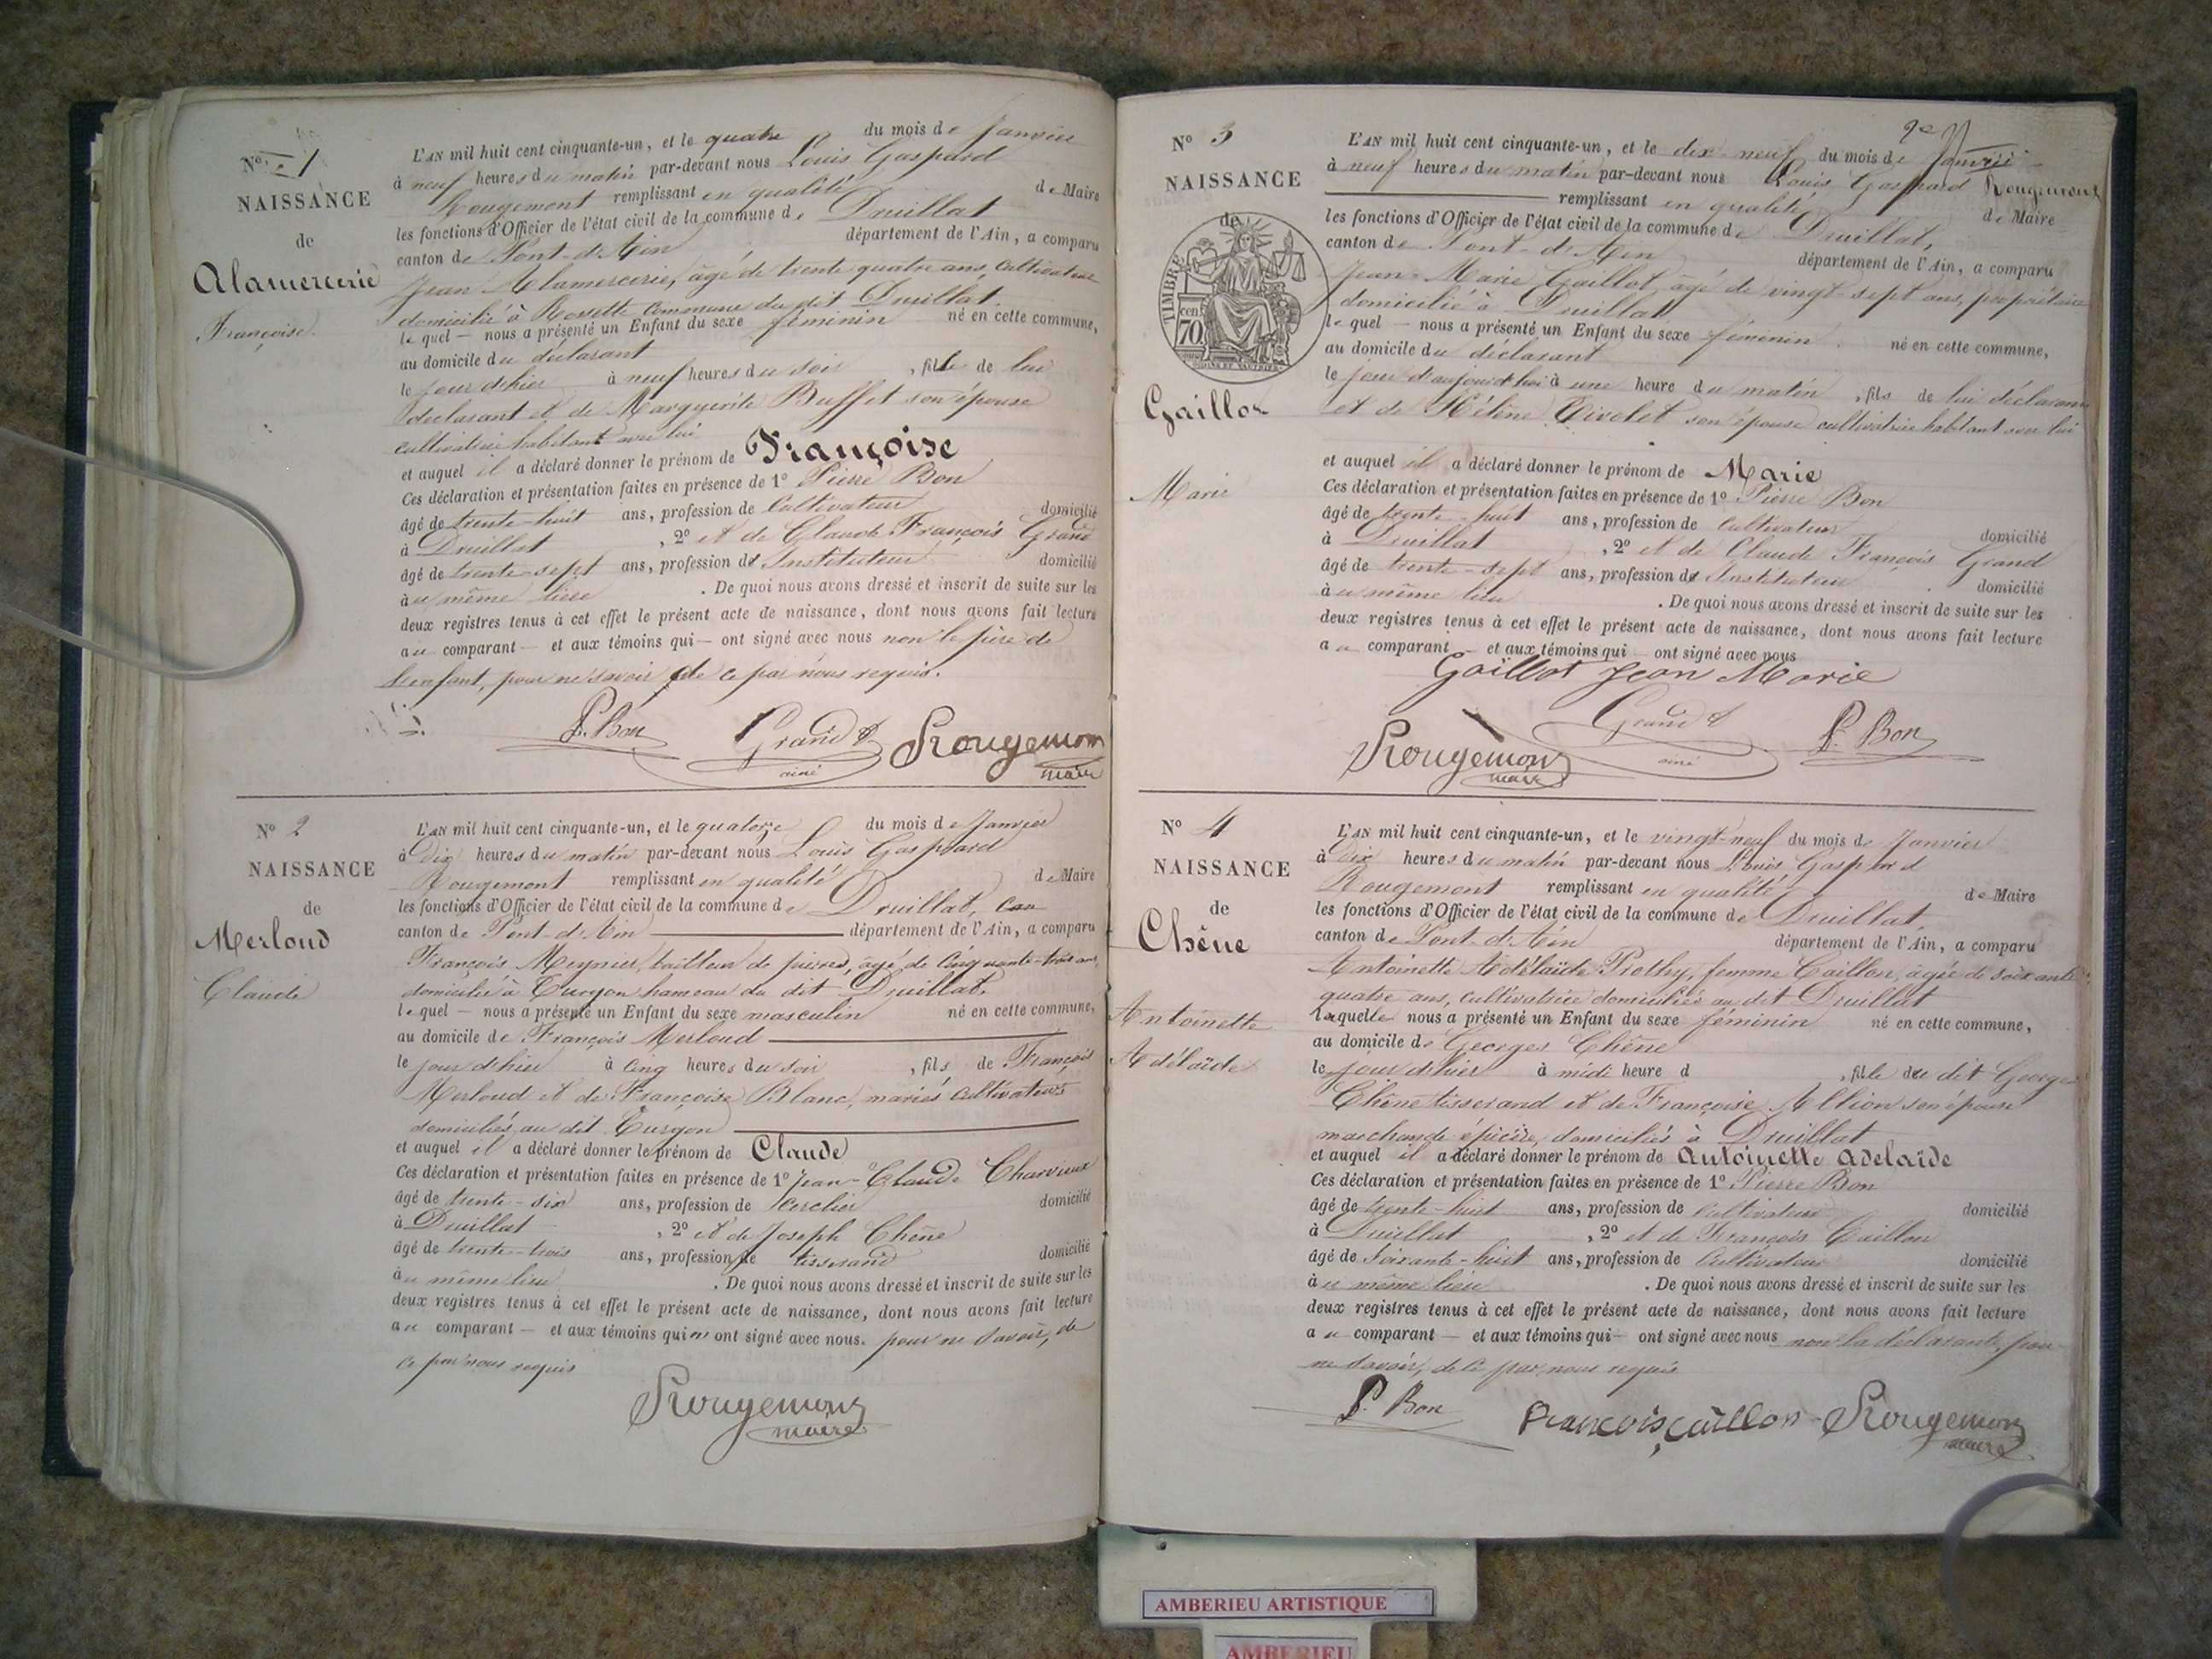 N° 1
NAISSANCE
de
Alamercerie
Françoise.
L'AN mil huit cent cinquante-un, et le quatre du mois de Janvier
à neuf heures du matin par-devant nous Louis Gaspard
Rougemont remplissant en qualité de Maire
les fonctions d'Officier de l'état civil de la commune de Druillat
canton de Pont-d'Ain département de l'Ain, a comparu
Jean Alamercerie, âgé de trente quatre ans, cultivateur
domicilié à Rossette commune du dit Druillat.
lequel — nous a présenté un Enfant du sexe féminin né en cette commune,
au domicile du déclarant
le jour d'hier à neuf heures du soir , fille de lui
déclarant et de Marguerite Buffet son épouse
cultivatrice habitant avec lui
et auquel il a déclaré donner le prénom de Françoise
Ces déclaration et présentation faites en présence de 1° Pierre Bon
âgé de trente-huit ans, profession de Cultivateur domicilié
à Druillat , 2° et de Claude François Grand
âgé de trente-sept ans, profession d' Instituteur domicilié
au même lieu . De quoi nous avons dressé et inscrit de suite sur les
deux registres tenus à cet effet le présent acte de naissance, dont nous avons fait lecture
au comparant — et aux témoins qui — ont signé avec nous non le père de
l'enfant, pour ne savoir de ce par nous requis.
P. Bon Grand Rougemont
ainé maire
N° 2
NAISSANCE
de
Merloud
Claude
L'AN mil huit cent cinquante-un, et le quatorze du mois de Janvier
à Dix heures du matin par-devant nous Louis Gaspard
Rougemont remplissant en qualité de Maire
les fonctions d'Officier de l'état civil de la commune de Druillat, Can
canton de Pont-d'Ain département de l'Ain, a comparu
François Meynier, tailleur de pierres, âgé de cinquante-trois ans,
domicilié à Turgon hameau du dit Druillat.
lequel — nous a présenté un Enfant du sexe masculin né en cette commune,
au domicile de François Merloud
le jour d'hier à cinq heures du soir , fils de François
Merloud et de Françoise Blanc, mariés cultivateurs
domiciliés au dit Turgon
et auquel il a déclaré donner le prénom de Claude
Ces déclaration et présentation faites en présence de 1° Jean-Claude Charvieux
âgé de trente-six ans, profession de domicilié
à Druillat , 2° et de Joseph Chêne
âgé de trente-trois ans, profession de tisserand domicilié
au même lieu . De quoi nous avons dressé et inscrit de suite sur les
deux registres tenus à cet effet le présent acte de naissance, dont nous avons fait lecture
au comparant — et aux témoins qui n'ont signé avec nous. pour ne savoir, de
ce par nous requis
Rougemont
maire
N° 3
NAISSANCE
de
TIMBRE
cen.
70
Gaillot
Marie
L'AN mil huit cent cinquante-un, et le dix-neuf du mois de Janvier
à neuf heures du matin par-devant nous Louis Gaspard Rougemont
remplissant en qualité de Maire
les fonctions d'Officier de l'état civil de la commune de Druillat,
canton de Pont-d'Ain département de l'Ain, a comparu
Jean-Marie Gaillot, âgé de vingt-sept ans, propriétaire
domicilié à Druillat
lequel — nous a présenté un Enfant du sexe féminin né en cette commune,
au domicile du déclarant
le jour d'aujourd'hui à une heure du matin , fils de lui déclarant
et de Hélène Tivolet son épouse cultivatrice habitant avec lui
et auquel il a déclaré donner le prénom de Marie
Ces déclaration et présentation faites en présence de 1° Pierre Bon
âgé de trente-huit ans, profession de Cultivateur domicilié
à Druillat , 2° et de Claude François Grand
âgé de trente-sept ans, profession d' Instituteur domicilié
au même lieu . De quoi nous avons dressé et inscrit de suite sur les
deux registres tenus à cet effet le présent acte de naissance, dont nous avons fait lecture
au comparant — et aux témoins qui ont signé avec nous
Gaillot Jean Marie
Rougemont Grand P. Bon
maire ainé
N° 4
NAISSANCE
de
Chêne
Antoinette
Adélaïde
L'AN mil huit cent cinquante-un, et le vingt-neuf du mois de Janvier
à dix heures du matin par-devant nous Louis Gaspard
Rougemont remplissant en qualité de Maire
les fonctions d'Officier de l'état civil de la commune de Druillat,
canton de Pont-d'Ain département de l'Ain, a comparu
Antoinette Adélaïde Prothy, femme Caillon, âgée de soixante
quatre ans, cultivatrice domiciliée au dit Druillat
laquelle nous a présenté un Enfant du sexe féminin né en cette commune,
au domicile de Georges Chêne
le jour d'hier à midi heure d , fille du dit Georges
Chêne tisserand et de Françoise Allion son épouse
marchande épicière, domiciliés à Druillat
et auquel il a déclaré donner le prénom de Antoinette Adelaïde
Ces déclaration et présentation faites en présence de 1° Pierre Bon
âgé de trente-huit ans, profession de Cultivateur domicilié
à Druillat , 2° et de François Caillon
âgé de soixante-huit ans, profession de Cultivateur domicilié
au même lieu . De quoi nous avons dressé et inscrit de suite sur les
deux registres tenus à cet effet le présent acte de naissance, dont nous avons fait lecture
au comparant — et aux témoins qui — ont signé avec nous non la déclarante, pour
ne savoir, de ce par nous requis
P. Bon François Caillon Rougemont
maire
AMBERIEU ARTISTIQUE
AMBERIEU